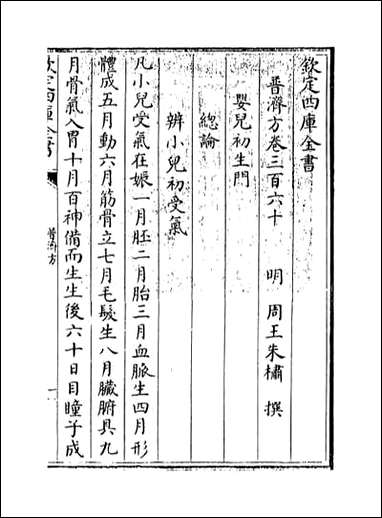 欽定四庫全書
普濟方卷三百六十 明 周王朱橚 撰
嬰兒初生門
總論
辨小兒初受氣
凡小兒受氣在娠一月胚二月胎三月血脈生四月形
體成五月動六月筋骨立七月毛髮生八月臟腑具九
月骨氣入胃十月百神備而生生後六十日目瞳子成
欽定四庫全書
普濟方
一